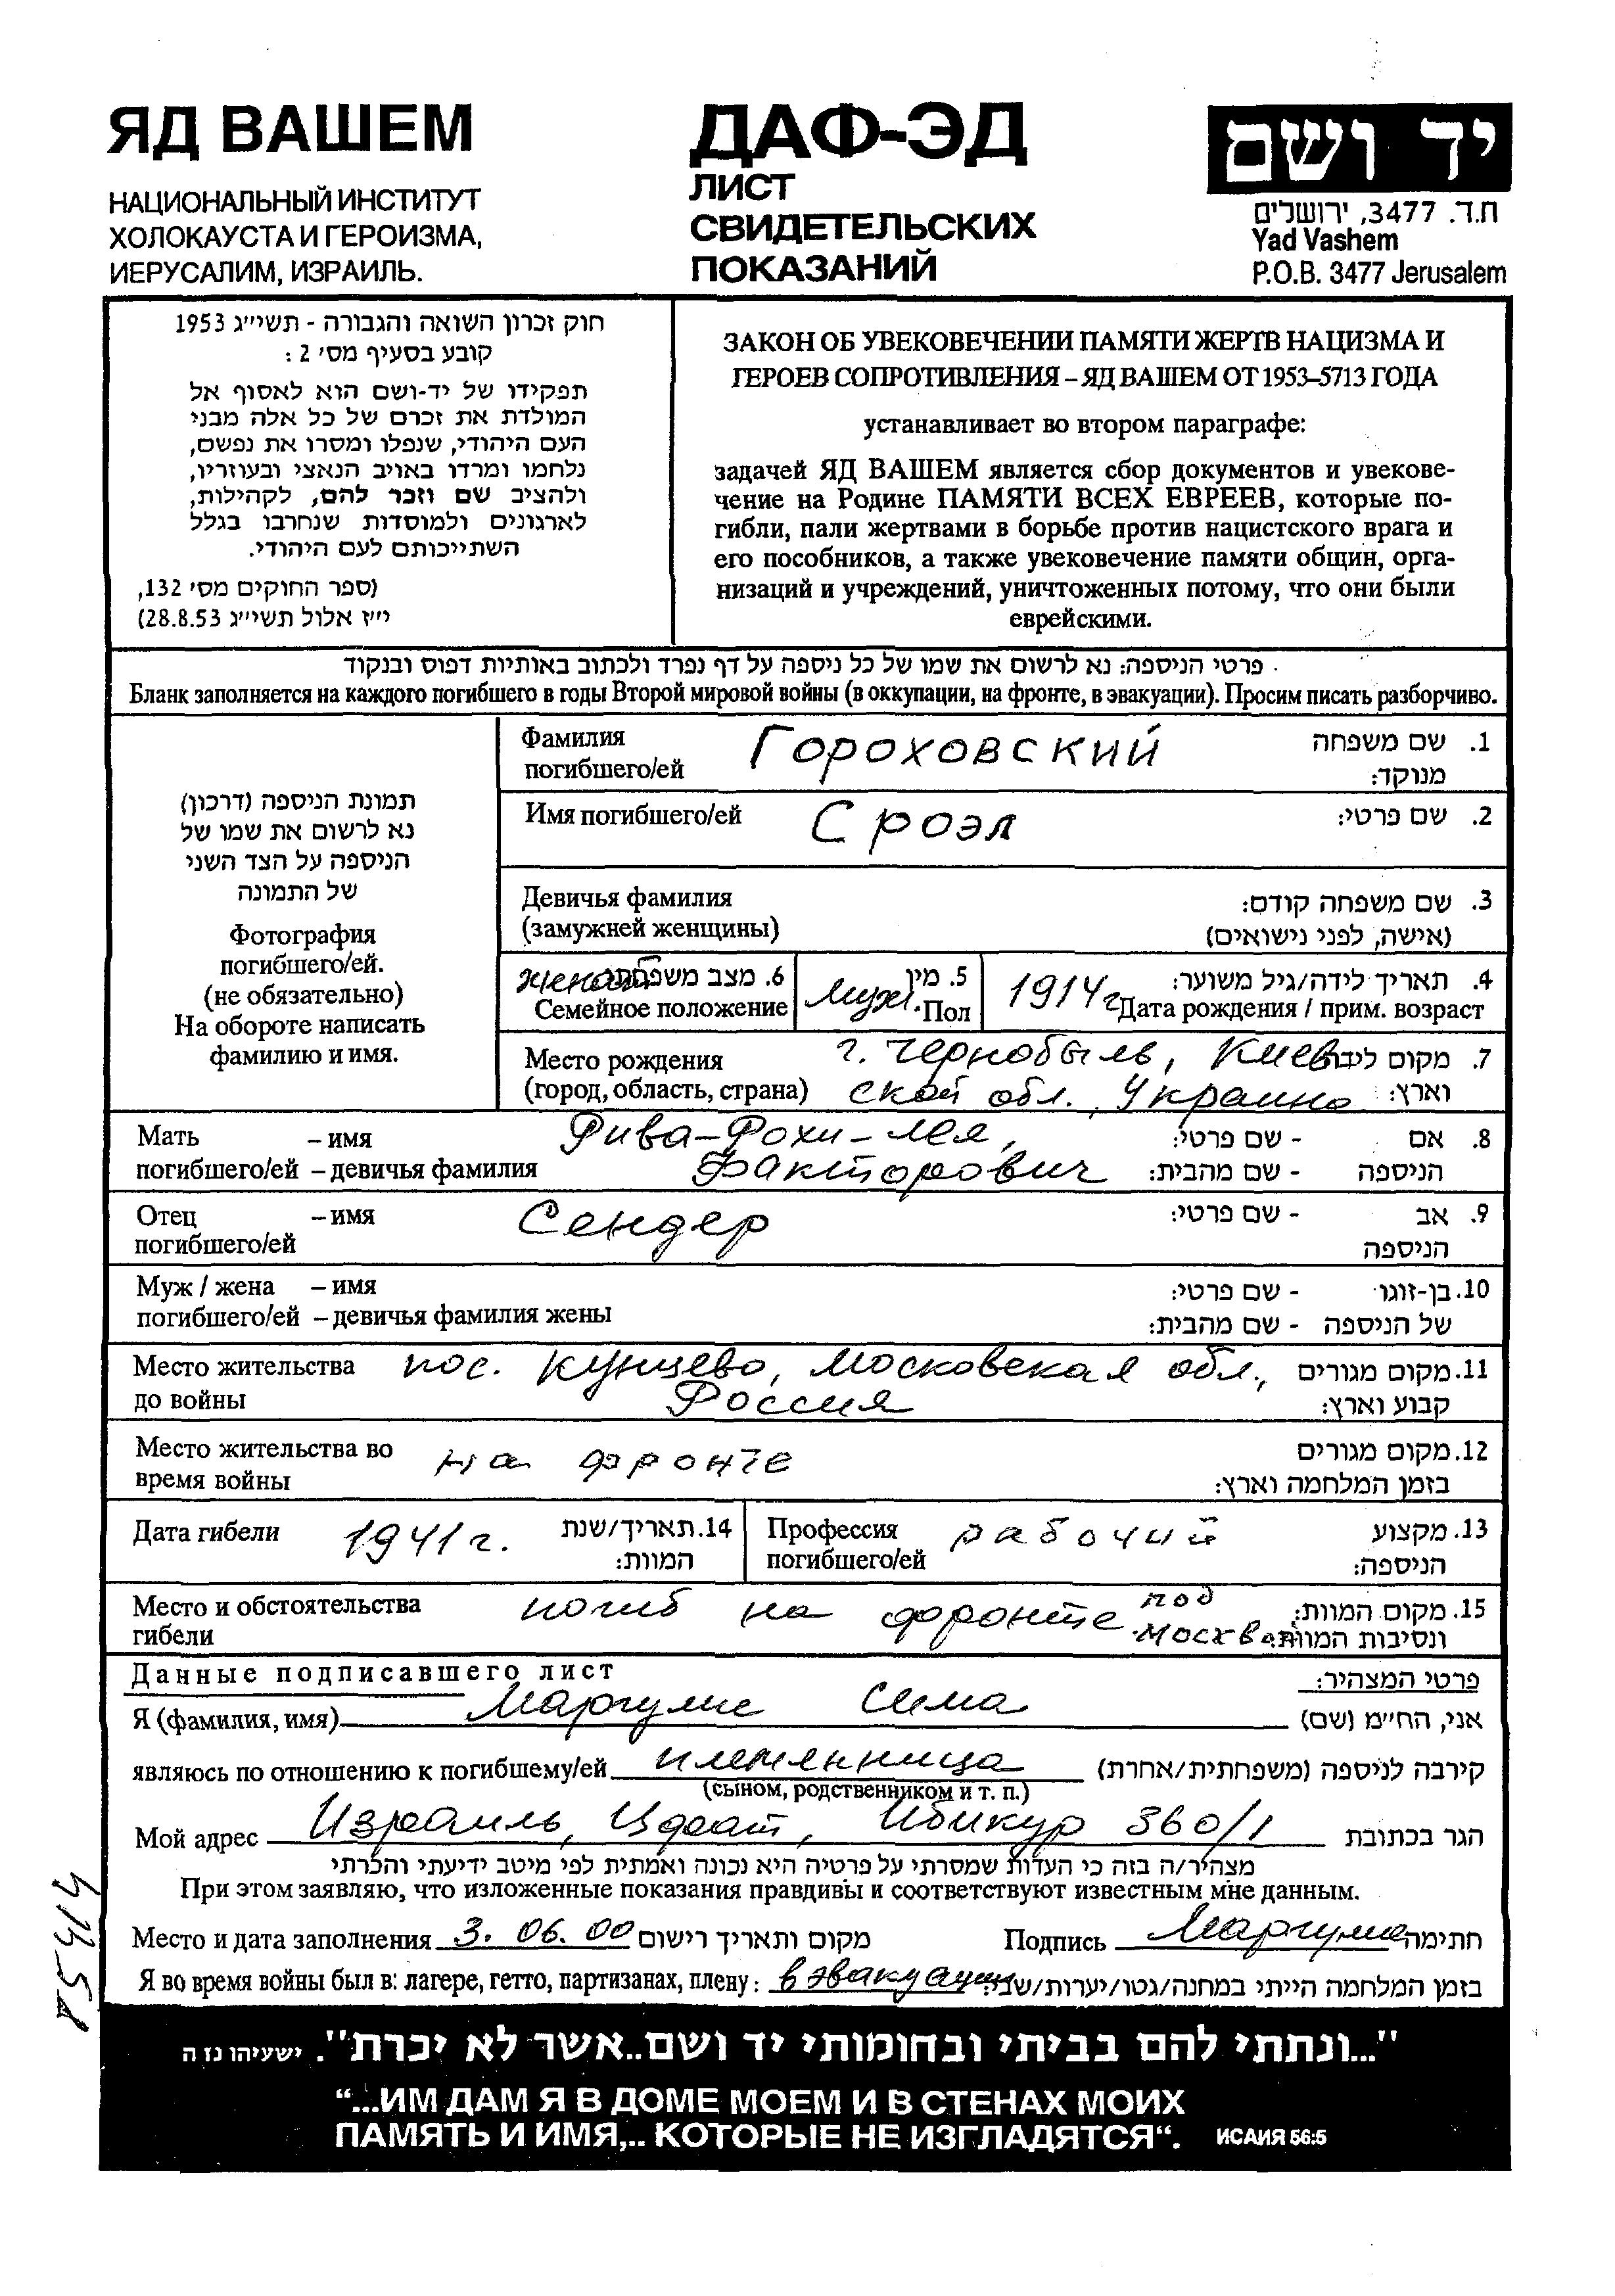 ЯД ВАШЕМ
НАЦИОНАЛЬНЫЙ ИНСТИТУТ
ХОЛОКАУСТА И ГЕРОИЗМА,
ИЕРУСАЛИМ, ИЗРАИЛЬ.
ДАФ-ЭД
ЛИСТ
СВИДЕТЕЛЬСКИХ
ПОКАЗАНИЙ
יד ושם
ת.ד. 3477, ירושלים
Yad Vashem
P.O.B. 3477 Jerusalem
חוק זכרון השואה והגבורה - תשי״ג 1953
קובע בסעיף מס׳ 2 :
תפקידו של יד-ושם הוא לאסוף אל
המולדת את זכרם של כל אלה מבני
העם היהודי, שנפלו ומסרו את נפשם,
נלחמו ומרדו באויב הנאצי ובעוזריו,
ולהציב שם וזכר להם, לקהילות,
לארגונים ולמוסדות שנחרבו בגלל
השתייכותם לעם היהודי.
(ספר החוקים מס׳ 132,
י״ז אלול תשי״ג 28.8.53)
ЗАКОН ОБ УВЕКОВЕЧЕНИИ ПАМЯТИ ЖЕРТВ НАЦИЗМА И
ГЕРОЕВ СОПРОТИВЛЕНИЯ – ЯД ВАШЕМ ОТ 1953–5713 ГОДА
устанавливает во втором параграфе:
задачей ЯД ВАШЕМ является сбор документов и увекове-
чение на Родине ПАМЯТИ ВСЕХ ЕВРЕЕВ, которые по-
гибли, пали жертвами в борьбе против нацистского врага и
его пособников, а также увековечение памяти общин, орга-
низаций и учреждений, уничтоженных потому, что они были
еврейскими.
פרטי הניספה: נא לרשום את שמו של כל ניספה על דף נפרד ולכתוב באותיות דפוס ובנקוד
Бланк заполняется на каждого погибшего в годы Второй мировой войны (в оккупации, на фронте, в эвакуации). Просим писать разборчиво.
תמונת הניספה (דרכון)
נא לרשום את שמו של
הניספה על הצד השני
של התמונה
Фотография
погибшего/ей.
(не обязательно)
На обороте написать
фамилию и имя.
Фамилия Гороховский 1. שם משפחה
погибшего/ей מנוקד:
Имя погибшего/ей Сроэл 2. שם פרטי:
Девичья фамилия 3. שם משפחה קודם:
(замужней женщины) (אישה, לפני נישואים)
женат 6. מצב משפחתי
Семейное положение
5. מין
Муж. Пол
1914г 4. תאריך לידה/גיל משוער:
Дата рождения / прим. возраст
Место рождения г. Чернобыль, Киев 7. מקום לידה
(город, область, страна) ской обл., Украина וארץ:
Мать – имя Рива-Рохи-Лея, - שם פרטי: 8. אם
погибшего/ей – девичья фамилия Факторович - שם מהבית: הניספה
Отец – имя Сендер - שם פרטי: 9. אב
погибшего/ей הניספה
Муж / жена – имя - שם פרטי: 10. בן-זוגו
погибшего/ей – девичья фамилия жены - שם מהבית: של הניספה
Место жительства пос. Кунцево, Московская обл., 11. מקום מגורים
до войны Россия קבוע וארץ:
Место жительства во на фронте 12. מקום מגורים
время войны בזמן המלחמה וארץ:
Дата гибели 1941г. 14. תאריך/שנת
המוות:
Профессия рабочий 13. מקצוע
погибшего/ей הניספה:
Место и обстоятельства погиб на фронте под 15. מקום המוות:
гибели Москвой ונסיבות המוות:
Данные подписавшего лист פרטי המצהיר:
Я (фамилия, имя) Маргулис Сима אני, הח״מ (שם)
являюсь по отношению к погибшему/ей племянница קירבה לניספה (משפחתית/אחרת)
(сыном, родственником и т. п.)
Мой адрес Израиль, Цфат, Ибикур 360/1 הגר בכתובת
מצהיר/ה בזה כי העדות שמסרתי על פרטיה היא נכונה ואמתית לפי מיטב ידיעתי והכרתי
При этом заявляю, что изложенные показания правдивы и соответствуют известным мне данным.
Место и дата заполнения 3. 06. 00 מקום ותאריך רישום Подпись Маргулис חתימה
Я во время войны был в: лагере, гетто, партизанах, плену: в эвакуации בזמן המלחמה הייתי במחנה/גטו/יערות/שבי:
"...ונתתי להם בביתי ובחומותי יד ושם..אשר לא יכרת". ישעיהו נז ה
“...ИМ ДАМ Я В ДОМЕ МОЕМ И В СТЕНАХ МОИХ
ПАМЯТЬ И ИМЯ,.. КОТОРЫЕ НЕ ИЗГЛАДЯТСЯ“. ИСАИЯ 56:5